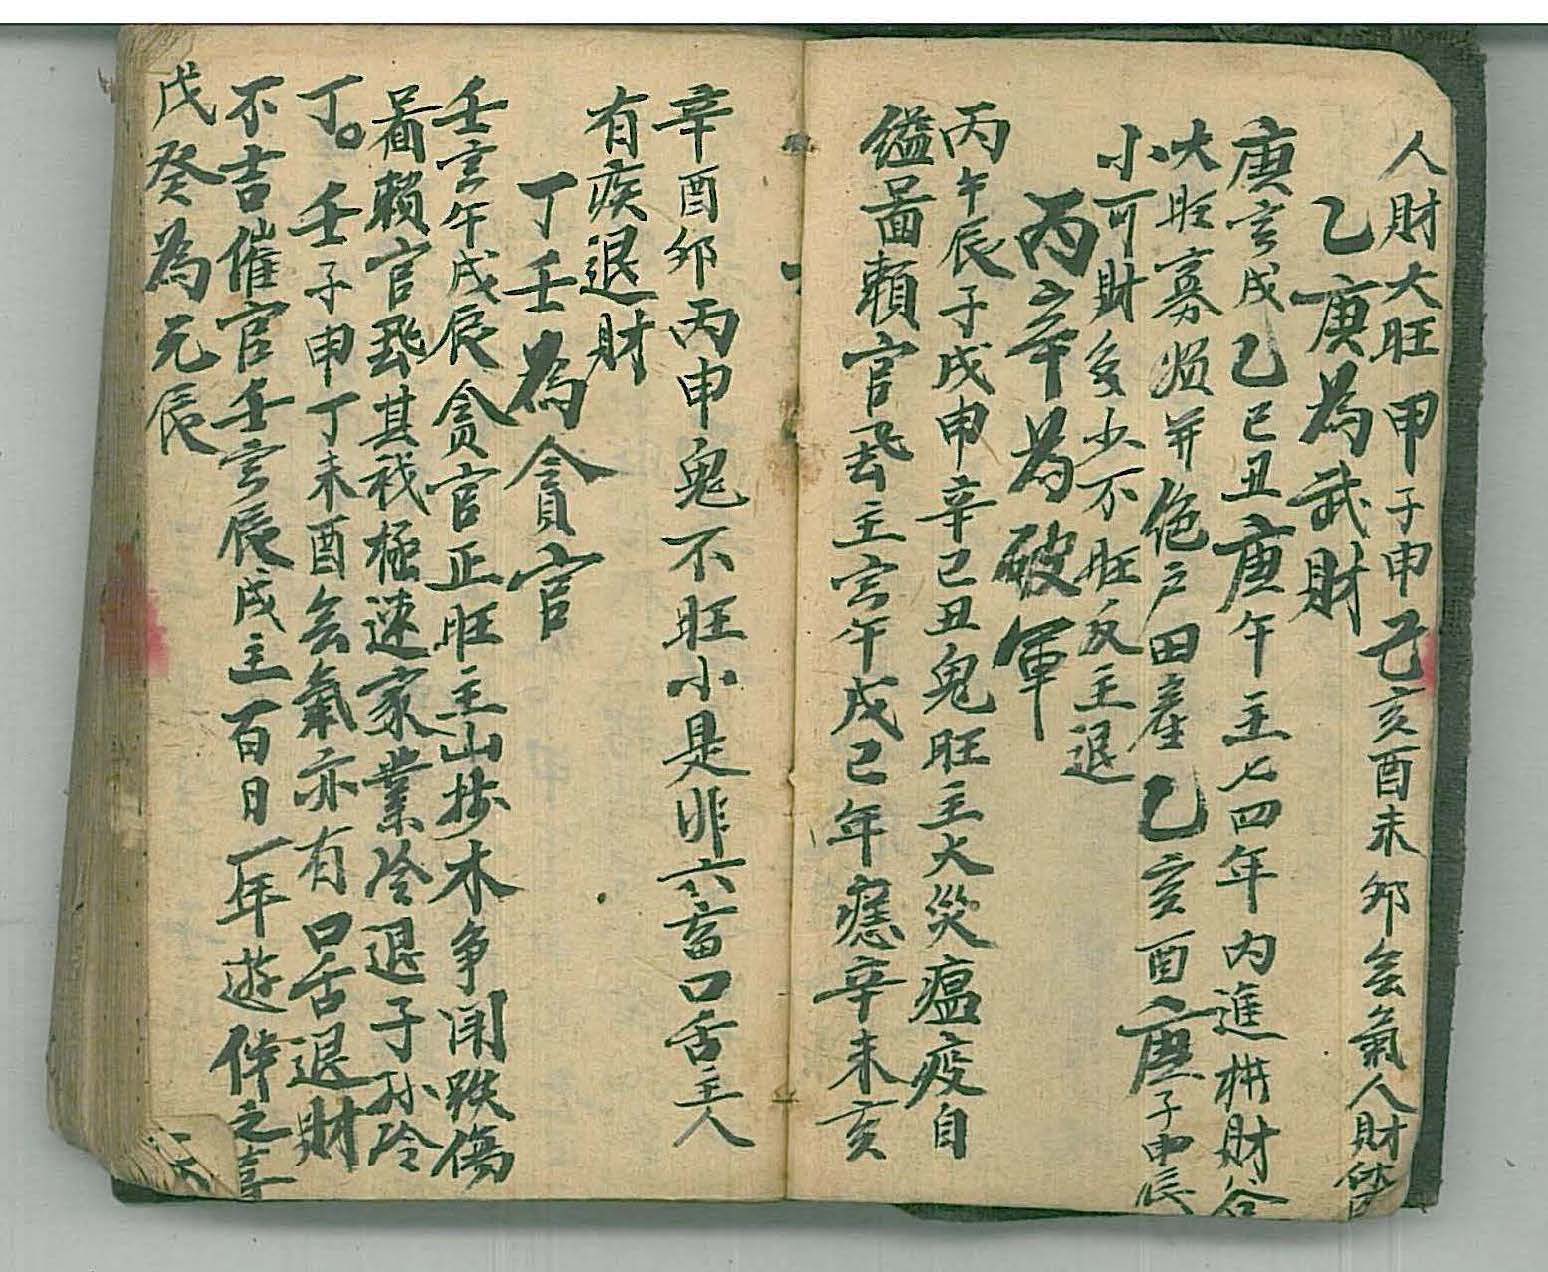 人財大旺甲子申己亥酉未卯會氣人財
乙庚為武財
庚寅戌乙巳丑庚午主七四年内進横財
大旺寡媍并絶户田產乙亥酉庚子申辰
小可財多少不旺反主退
丙辛為破軍
丙午辰子戌申辛己丑鬼旺主大災瘟疫自
鎰啚賴官主寅午戌己年辛未亥
辛酉卯丙申鬼不旺小是非六畜口舌主人
有疾退財
丁壬為貪官
壬寅午戌辰貪官正旺主山埗木争闹跌傷
啚賴官其我極速家業冷退子孙冷
丁。壬子申丁未酉會氣亦有口舌退財
不吉催官壬寅辰戌主一百日一年遊
戊癸為元辰